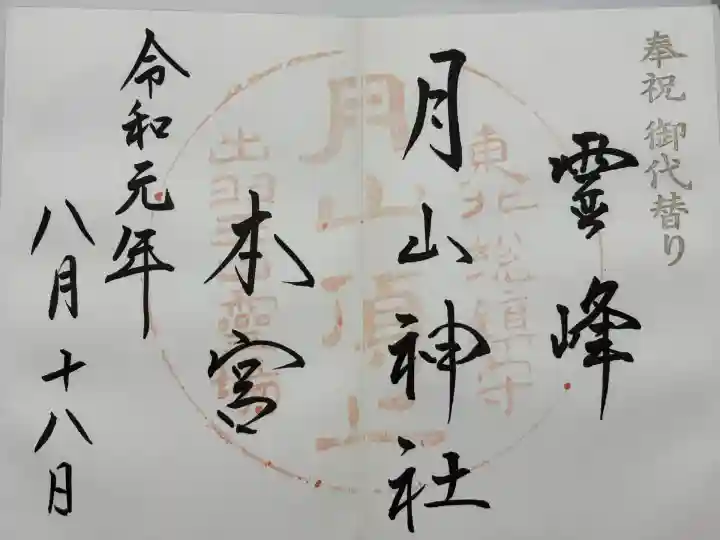 奉祝 御代替り
雲峰
月山神社
本宮
令和元年
八月十八日
東北総鎮守
月山頂上
出羽三山霊場